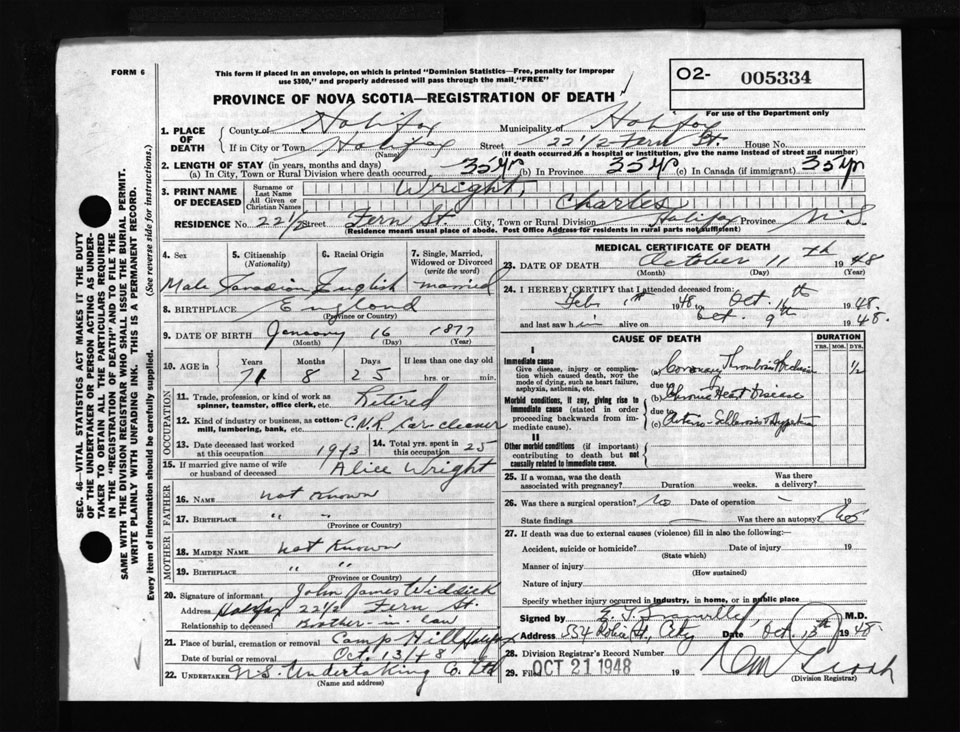 FORM 6
This form if placed in an envelope, on which is printed "Dominion Statistics—Free, penalty for improper
use $300," and properly addressed will pass through the mail "FREE"
O2- 005334
For use of the Department only
PROVINCE OF NOVA SCOTIA—REGISTRATION OF DEATH
1. PLACE OF DEATH
County of Halifax Municipality of Halifax
If in City or Town Halifax Street 22 1/2 Fern St. House No.
(Name) (If death occurred in a hospital or institution, give the name instead of street and number)
2. LENGTH OF STAY (in years, months and days)
(a) In City, Town or Rural Division where death occurred 35 yr (b) In Province 35 yr (c) In Canada (if immigrant) 35 yr
3. PRINT NAME OF DECEASED
Surname or Last Name Wright,
All Given or Christian Names Charles
RESIDENCE No. 22 1/2 Street Fern St. City, Town or Rural Division Halifax Province N.S.
(Residence means usual place of abode. Post Office Address for residents in rural parts not sufficient)
4. Sex
Male
5. Citizenship
(Nationality)
Canadian
6. Racial Origin
English
7. Single, Married,
Widowed or Divorced
(write the word)
Married
8. BIRTHPLACE England
(Province or Country)
9. DATE OF BIRTH January 16 1877
(Month) (Day) (Year)
10. AGE in Years Months Days If less than one day old
71 8 25 hrs. or min.
OCCUPATION
11. Trade, profession or kind of work as
spinner, teamster, office clerk, etc. Retired
12. Kind of industry or business, as cotton-
mill, lumbering, bank, etc. C.N.R. Car cleaner
13. Date deceased last worked
at this occupation 1943
14. Total yrs. spent in
this occupation 25
15. If married give name of wife
or husband of deceased Alice Wright
FATHER
16. NAME not known
17. BIRTHPLACE " "
(Province or Country)
MOTHER
18. MAIDEN NAME not known
19. BIRTHPLACE " "
(Province or Country)
20. Signature of informant John James
Address Halifax 22 1/2 Fern St.
Relationship to deceased Brother-in-law
21. Place of burial, cremation or removal Camp Hill Halifax
Date of burial or removal Oct. 13/48
22. UNDERTAKER N.S. Undertaking Co. Ltd
(Name and address)
MEDICAL CERTIFICATE OF DEATH
23. DATE OF DEATH October 11th 1948
(Month) (Day) (Year)
24. I HEREBY CERTIFY that I attended deceased from:
Feb 1948 to Oct. 1948.
and last saw him alive on Oct. 9th 1948.
CAUSE OF DEATH
DURATION
YRS. MOS. DYS.
I
Immediate cause
Give disease, injury or complication
which caused death, NOT the
mode of dying, such as heart failure,
asphyxia, asthenia, etc.
(a) Coronary Thrombosis 1/2
due to
Morbid conditions, if any, giving rise to
immediate cause (stated in order
proceeding backwards from immediate
cause).
(b) Chronic Heart Disease
due to
(c) Arterio-Sclerosis
II
Other morbid conditions (if important)
contributing to death but not
causally related to immediate cause.
25. If a woman, was the death
associated with pregnancy? Duration weeks. Was there
a delivery?
26. Was there a surgical operation? No Date of operation — 19
State findings — Was there an autopsy? No
27. If death was due to external causes (violence) fill in also the following:—
Accident, suicide or homicide? Date of injury 19
(State which)
Manner of injury
(How sustained)
Nature of injury
Specify whether injury occurred in industry, in home, or in public place
Signed by M.D.
Address City Date Oct. 1948
28. Division Registrar's Record Number
29. Filed OCT 21 1948 19
(Division Registrar)
SEC. 46—VITAL STATISTICS ACT MAKES IT THE DUTY
OF THE UNDERTAKER OR PERSON ACTING AS UNDER-
TAKER TO OBTAIN ALL THE PARTICULARS REQUIRED
IN THE "REGISTRATION OF DEATH" AND TO FILE THE
SAME WITH THE DIVISION REGISTRAR WHO SHALL ISSUE THE BURIAL PERMIT.
WRITE PLAINLY WITH UNFADING INK. THIS IS A PERMANENT RECORD.
Every item of information should be carefully supplied. (See reverse side for instructions.)